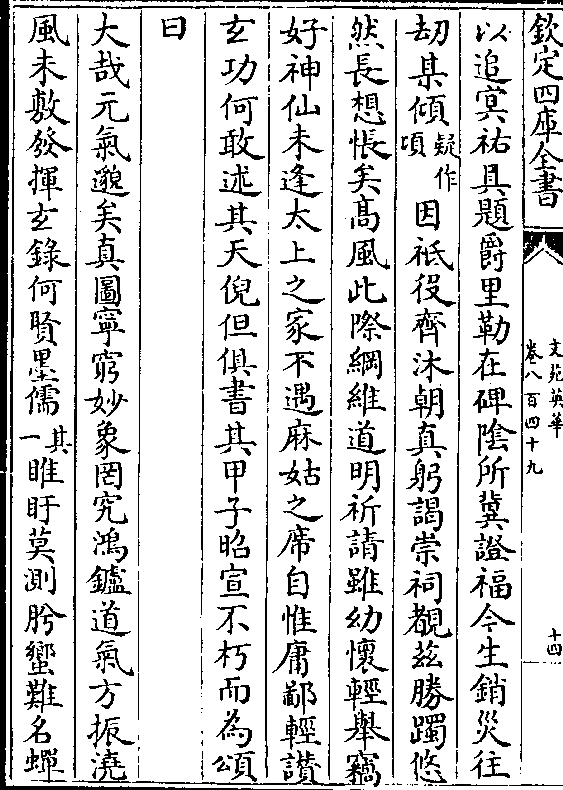 欽定四庫全書
文苑英華
卷八百四十九
十四
以追冥祐具題爵里勒在碑陰所冀證福今生銷災往
劫某傾疑作項因祗役齊沐朝真躬謁崇祠覩茲勝躅悠
然長想悵矣高風此際綱維道明祈請雖幼懷輕舉竊
好神仙未逢太上之家不遇麻姑之席自惟庸鄙輕讃
玄功何敢述其天倪但俱書其甲子昭宣不朽而為頌
曰
大哉元氣邈矣真圖寧窮妙象罔究鴻鑪道氣方振澆
風未敷發揮玄錄何賢墨儒其一睢盱莫測肹蠁難名蟬